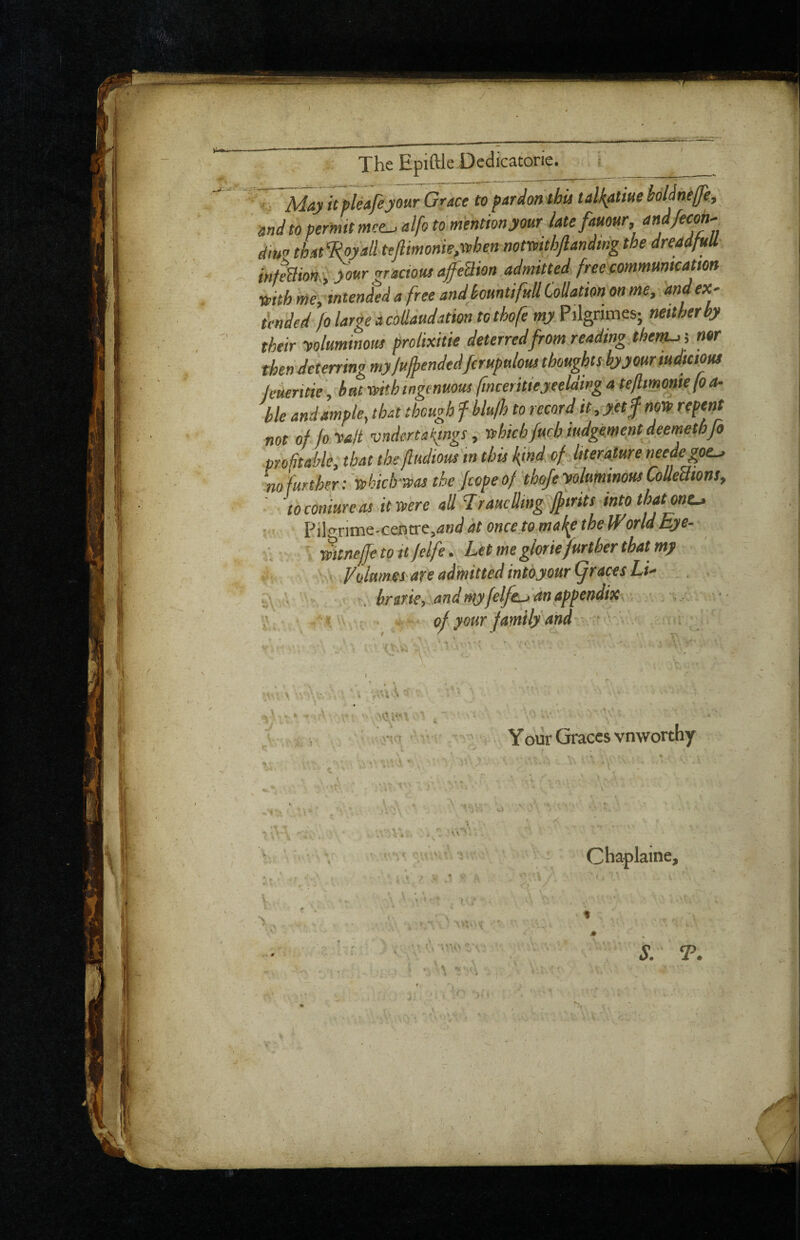 The Epiſtle Dedicatorie.
May it pleaſe your Grace to pardon this talkatiue boldneſſe,
and to permit mee alſo to mention your late fauour, and ſecon-
ding that Royall teſtimonie, when notwithſtanding the dreadfull
infection, your gracious affection admitted free communication
with me, intended a free and bountifull Collation on me, and ex-
tended ſo large a collaudation to thoſe my Pilgrimes; neither by
their voluminous prolixitie deterred from reading them; nor
then deterring my ſuſpended ſcrupulous thoughts by your iudicious
ſeueritie, but with ingenuous ſinceritie yeelding a teſtimonie ſo a-
ble and ample, that though I bluſh to record it, yet I now repent
not of ſo vaſt vndertakings, which ſuch iudgement deemeth ſo
profitable, that the ſtudious in this kind of literature neede goe
no further: which was the ſcope of thoſe voluminous Collections,
to coniure as it were all Trauelling ſpirits into that one
Pilgrime-centre, and at once to make the World Eye-
witneſſe to it ſelfe. Let me glorie further that my
Volumes are admitted into your Graces Li-
brarie, and my ſelfe an appendix
of your family and
Your Graces vnworthy
Chaplaine,
S. P.